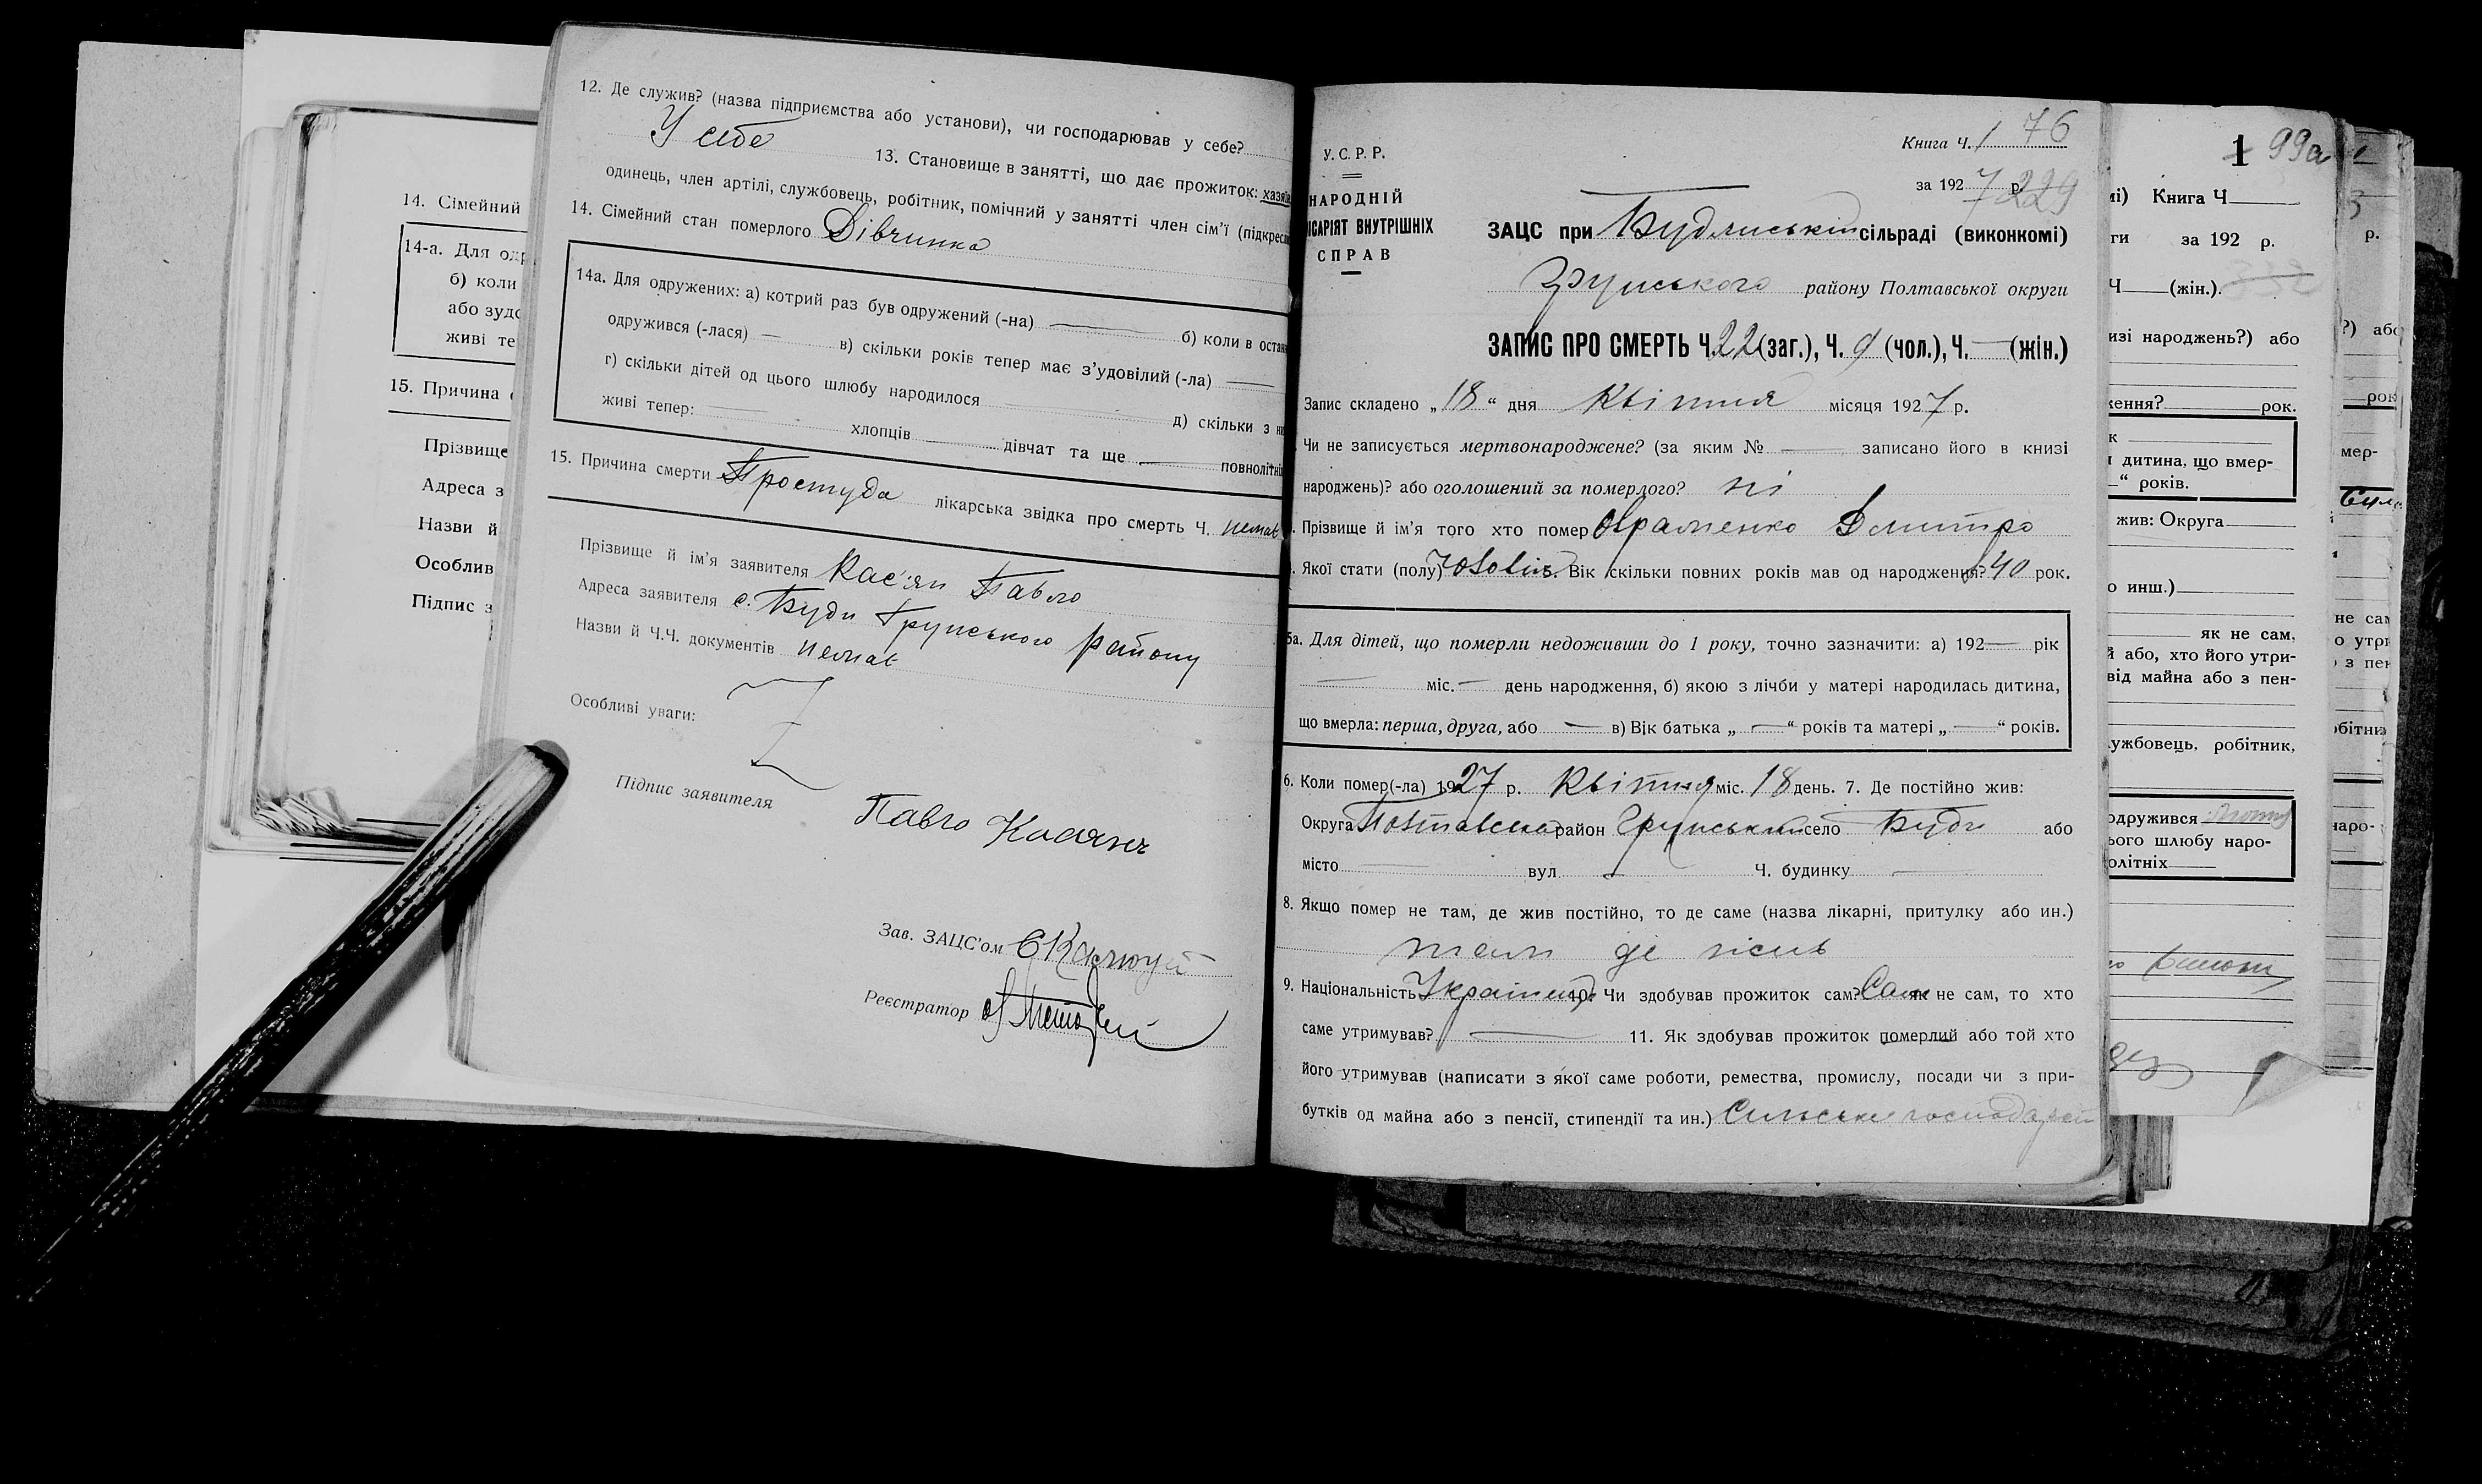 12. Де служив? (назва підприємства або установи), чи господарював у себе?
У себе 13. Становище в занятті, що дає прожиток: хазяїн
одинець, член артілі, службовець, робітник, помічний у занятті член сім’ї (підкресл
14. Сімейний стан померлого Дівчинка
14а. Для одружених: а) котрий раз був одружений (-на) — б) коли в остан
одружився (-лася) — в) скільки років тепер має з’удовілий (-ла) —
г) скільки дітей од цього шлюбу народилося — д) скільки з ни
живі тепер: — хлопців — дівчат та ще — повнолітні
15. Причина смерти Простуда лікарська звідка про смерть Ч. немає
Прізвище й ім’я заявителя Кас’ян Павло
Адреса заявителя с. Буди Грунського району
Назви й Ч.Ч. документів немає
Особливі уваги:
Підпис заявителя Павло Касянъ
Зав. ЗАЦС’ом
Реєстратор
14. Сімейний
14-а. Для од
б) коли
або зудо
живі те
15. Причина
Прізвище
Адреса з
Назви й
Особлив
Підпис з
Книга Ч. 1 76
У.С.Р.Р.
за 1927 р. 229
НАРОДНІЙ
ІСАРІЯТ ВНУТРІШНІХ
СПРАВ
ЗАЦС при Будлиській сільраді (виконкомі)
Грунського району Полтавської округи
ЗАПИС ПРО СМЕРТЬ Ч. 22 (заг.), Ч. 9 (чол.), Ч. — (жін.)
Запис складено „18“ дня Квітня місяця 1927 р.
Чи не записується мертвонароджене? (за яким № — записано його в книзі
народжень)? або оголошений за померлого? ні
Прізвище й ім’я того хто помер Авраменко Дмитро
Якої стати (полу) Чоловіч. 5. Вік скільки повних років мав од народження? 40 рок.
5а. Для дітей, що померли недоживши до 1 року, точно зазначити: а) 192— рік
— міс. — день народження, б) якою з лічби у матері народилась дитина,
що вмерла: перша, друга, або — в) Вік батька „—“ років та матері „—“ років.
6. Коли помер(-ла) 1927 р. Квітня міс. 18 день. 7. Де постійно жив:
Округа Полтавська район Грунський село Буди або
місто — вул — Ч. будинку —
8. Якщо помер не там, де жив постійно, то де саме (назва лікарні, притулку або ин.)
там де жив
9. Національність Українец 10. Чи здобував прожиток сам? Сам як не сам, то хто
саме утримував? — 11. Як здобував прожиток померлий або той хто
його утримував (написати з якої саме роботи, ремества, промислу, посади чи з при-
бутків од майна або з пенсії, стипендії та ин.) Сильське господарст
1 99а
мі) Книга Ч
ги за 192 р.
Ч (жін.).
изі народжень?) або
кення? рок.
к
дитина, що вмер-
“ років.
жив: Округа
о инш.)
як не сам,
й або, хто його утри-
від майна або з пен-
ужбовець, робітник,
одружився
ього шлюбу наро-
олітніх
3
р.
?) або
рок
мер-
не сам
о утри
з пен
обітник
наро-